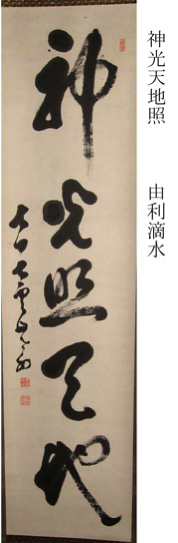 神光天地照　由利滴水
神光照天地